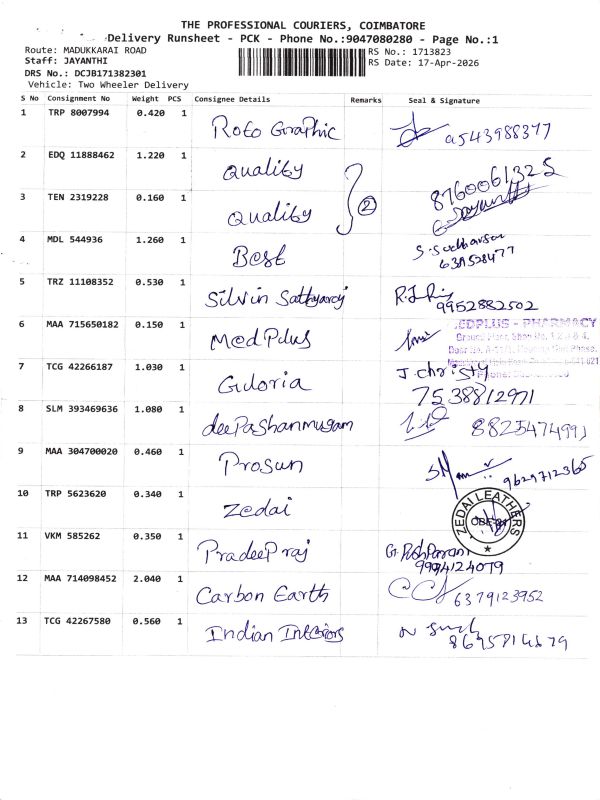 THE PROFESSIONAL COURIERS, COIMBATORE
Delivery Runsheet - PCK - Phone No.:9047080280 - Page No.:1
Route: MADUKKARAI ROAD
RS No.: 1713823
Staff: JAYANTHI
RS Date: 17-Apr-2026
DRS No.: DCJB171382301
Vehicle: Two Wheeler Delivery
S No Consignment No Weight PCS Consignee Details Remarks Seal & Signature
1 TRP 8007994 0.420 1 Roto Graphic 9543988377
2 EDQ 11888462 1.220 1 Quality 8760061325
3 TEN 2319228 0.160 1 Quality 2
4 MDL 544936 1.260 1 Best
5 TRZ 11108352 0.530 1 Silvin 9952882502
6 MAA 715650182 0.150 1 MedPlus
EDPLUS - PHARMACY
7 TCG 42266187 1.030 1 Guloria J. christy
7538812971
8 SLM 393469636 1.080 1 deePashanmugam 8825474991
9 MAA 304700020 0.460 1 Prosun 9629712365
10 TRP 5623620 0.340 1 Zedai
ZEDAI LEATHERS
CBE
11 VKM 585262 0.350 1 PradeeP raj
9994124079
12 MAA 714098452 2.040 1 Carbon Earth 6379123952
13 TCG 42267580 0.560 1 Indian Interiors